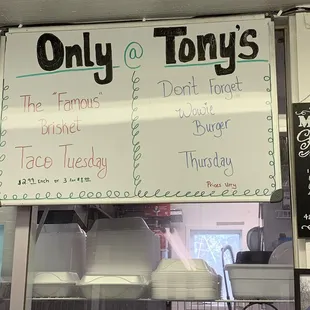 Only @ Tony's
The "Famous"
Brisket
Taco Tuesday
$2.99 each or
Don't Forget
Wowie
Burger
Thursday
Prices Vary